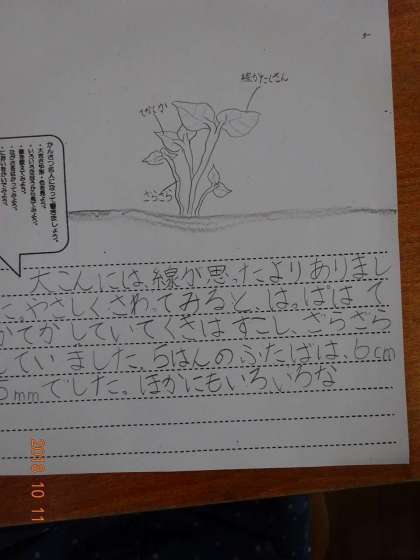 線がたくさん
てかてか
ざらざら
かんさつ名人になって書きましょう。
大こんには、線が思ったよりありまし
た。やさしくさわってみると、はっぱはて
かてかしていてくきはすこし、ざらざら
していました。5はんのふたばは、6cm
5mmでした。ほかにもいろいろな
2018 10 11